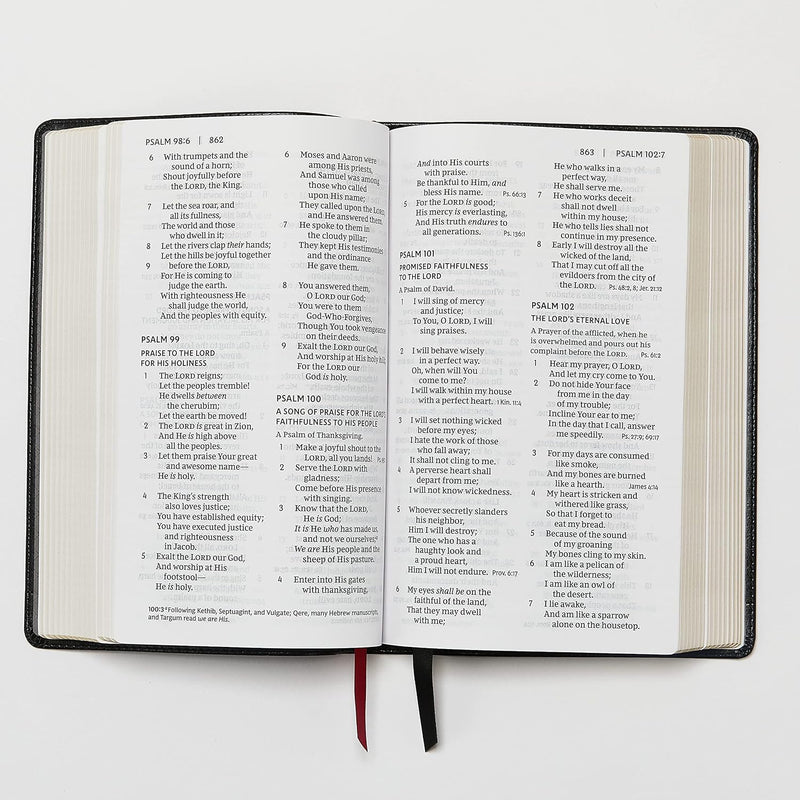 PSALM 98:6 | 862
6 With trumpets and the
sound of a horn;
Shout joyfully before
the LORD, the King.
7 Let the sea roar, and
all its fullness,
The world and those
who dwell in it;
8 Let the rivers clap their hands;
Let the hills be joyful together
9 before the LORD,
For He is coming to
judge the earth.
With righteousness He
shall judge the world,
And the peoples with equity.
PSALM 99
PRAISE TO THE LORD
FOR HIS HOLINESS
1 The LORD reigns;
Let the peoples tremble!
He dwells between
the cherubim;
Let the earth be moved!
2 The LORD is great in Zion,
And He is high above
all the peoples.
3 Let them praise Your great
and awesome name—
He is holy.
4 The King's strength
also loves justice;
You have established equity;
You have executed justice
and righteousness
in Jacob.
5 Exalt the LORD our God,
And worship at His
footstool—
He is holy.
6 Moses and Aaron were
among His priests,
And Samuel was among
those who called
upon His name;
They called upon the LORD,
and He answered them.
7 He spoke to them in
the cloudy pillar;
They kept His testimonies
and the ordinance
He gave them.
8 You answered them,
O LORD our God;
You were to them
God-Who-Forgives,
Though You took vengeance
on their deeds.
9 Exalt the LORD our God,
And worship at His holy hill;
For the LORD our
God is holy.
PSALM 100
A SONG OF PRAISE FOR THE LORD'S
FAITHFULNESS TO HIS PEOPLE
A Psalm of Thanksgiving.
1 Make a joyful shout to the
LORD, all you lands!
2 Serve the LORD with
gladness;
Come before His presence
with singing.
3 Know that the LORD,
He is God;
It is He who has made us,
and not we ourselves;
We are His people and the
sheep of His pasture.
4 Enter into His gates
with thanksgiving,
100:3 ª Following Kethib, Septuagint, and Vulgate; Qere, many Hebrew manuscripts,
and Targum read we are His.
863 | PSALM 102:7
And into His courts
with praise.
Be thankful to Him, and
bless His name. Ps. 66:13
5 For the LORD is good;
His mercy is everlasting,
And His truth endures to
all generations. Ps. 136:1
PSALM 101
PROMISED FAITHFULNESS
TO THE LORD
A Psalm of David.
1 I will sing of mercy
and justice;
To You, O LORD, I will
sing praises.
2 I will behave wisely
in a perfect way.
Oh, when will You
come to me?
I will walk within my house
with a perfect heart. 1 Kin. 11:4
3 I will set nothing wicked
before my eyes;
I hate the work of those
who fall away;
It shall not cling to me.
4 A perverse heart shall
depart from me;
I will not know wickedness.
5 Whoever secretly slanders
his neighbor,
Him I will destroy;
The one who has a
haughty look and
a proud heart,
Him I will not endure. Prov. 6:17
6 My eyes shall be on the
faithful of the land,
That they may dwell
with me;
He who walks in a
perfect way,
He shall serve me.
7 He who works deceit
shall not dwell
within my house;
He who tells lies shall not
continue in my presence.
8 Early I will destroy all the
wicked of the land,
That I may cut off all the
evildoers from the city of
the LORD. Ps. 48:2, 8; Jer. 21:12
PSALM 102
THE LORD'S ETERNAL LOVE
A Prayer of the afflicted, when he
is overwhelmed and pours out his
complaint before the LORD. Ps. 61:2
1 Hear my prayer, O LORD,
And let my cry come to You.
2 Do not hide Your face
from me in the day
of my trouble;
Incline Your ear to me;
In the day that I call, answer
me speedily. Ps. 27:9; 69:17
3 For my days are consumed
like smoke,
And my bones are burned
like a hearth. James 4:14
4 My heart is stricken and
withered like grass,
So that I forget to
eat my bread.
5 Because of the sound
of my groaning
My bones cling to my skin.
6 I am like a pelican of
the wilderness;
I am like an owl of
the desert.
7 I lie awake,
And am like a sparrow
alone on the housetop.